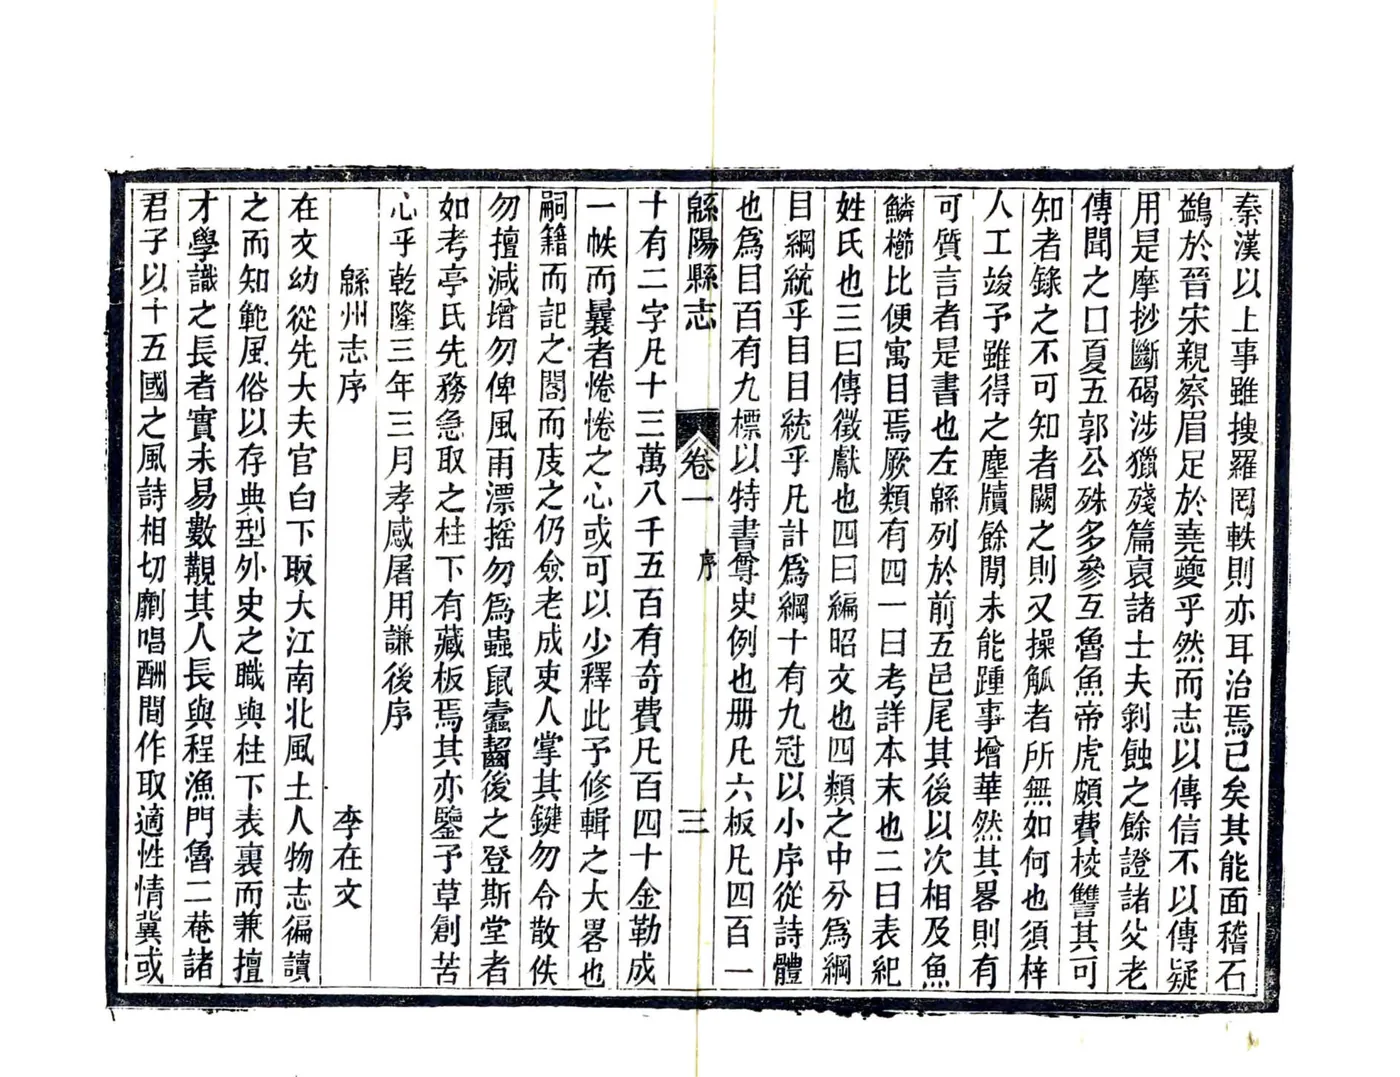 秦漢以上事雖搜羅罔軼則亦耳治焉已矣其能面稽石
鷁於晉宋親察眉足於堯夔乎然而志以傳信不以傳疑
用是摩抄斷碣涉獵殘篇裒諸士夫剥蝕之餘證諸父老
傳聞之口夏五郭公殊多參互魯魚帝虎頗費棱讐其可
知者錄之不可知者闕之則又操觚者所無如何也須梓
人工竣予雖得之塵牘餘閒未能踵事增華然其畧則有
可質言者是書也左緜列於前五邑尾其後以次相及魚
鱗櫛比便寓目焉厥類有四一曰考詳本末也二曰表紀
姓氏也三曰傳徵獻也四曰編昭文也四類之中分爲綱
目綱統乎目目統乎凡計爲綱十有九冠以小序從詩體
也爲目百有九標以特書尊史例也册凡六板凡四百一
緜陽縣志
卷一
序
三
十有二字凡十三萬八千五百有奇費凡百四十金勒成
一帙而曩者惓惓之心或可以少釋此予修輯之大畧也
嗣籍而記之閣而庋之仍僉老成吏人掌其鍵勿令散佚
勿擅減增勿俾風雨漂搖勿爲蟲鼠蠧齧後之登斯堂者
如考亭氏先務急取之柱下有藏板焉其亦鑒予草創苦
心乎乾隆三年三月孝感屠用謙後序
緜州志序 李在文
在文幼從先大夫官白下取大江南北風土人物志徧讀
之而知範風俗以存典型外史之職與柱下表裏而兼擅
才學識之長者實未易數觀其人長與程漁門魯二菴諸
君子以十五國之風詩相切劘唱酬間作取適性情冀或